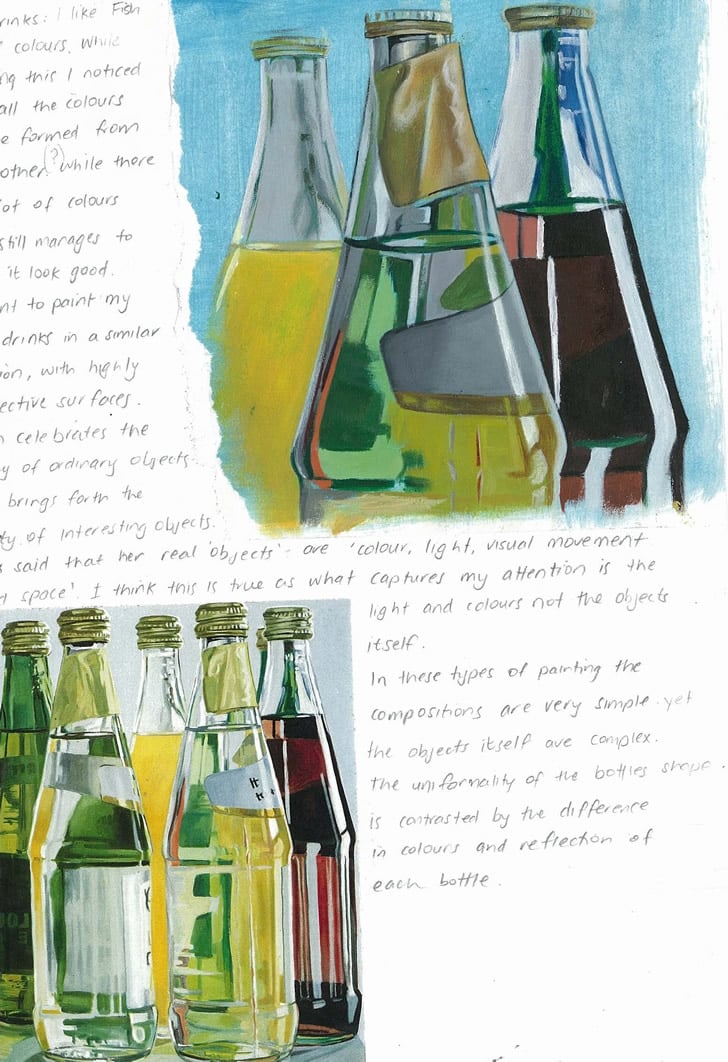 rinks: I like Fish
colours. While
ng this I noticed
all the colours
e formed from
other (?) while there
ot of colours
still manages to
it look good.
nt to paint my
drinks in a similar
ion, with highly
ective surfaces.
h celebrates the
y of ordinary objects
brings forth the
ty of interesting objects.
s said that her real 'objects' are 'colour, light, visual movement
d space'. I think this is true as what captures my attention is the
light and colours not the objects
itself.
In these types of painting the
compositions are very simple yet
the objects itself are complex.
The uniformality of the bottles shape
is contrasted by the difference
in colours and reflection of
each bottle.